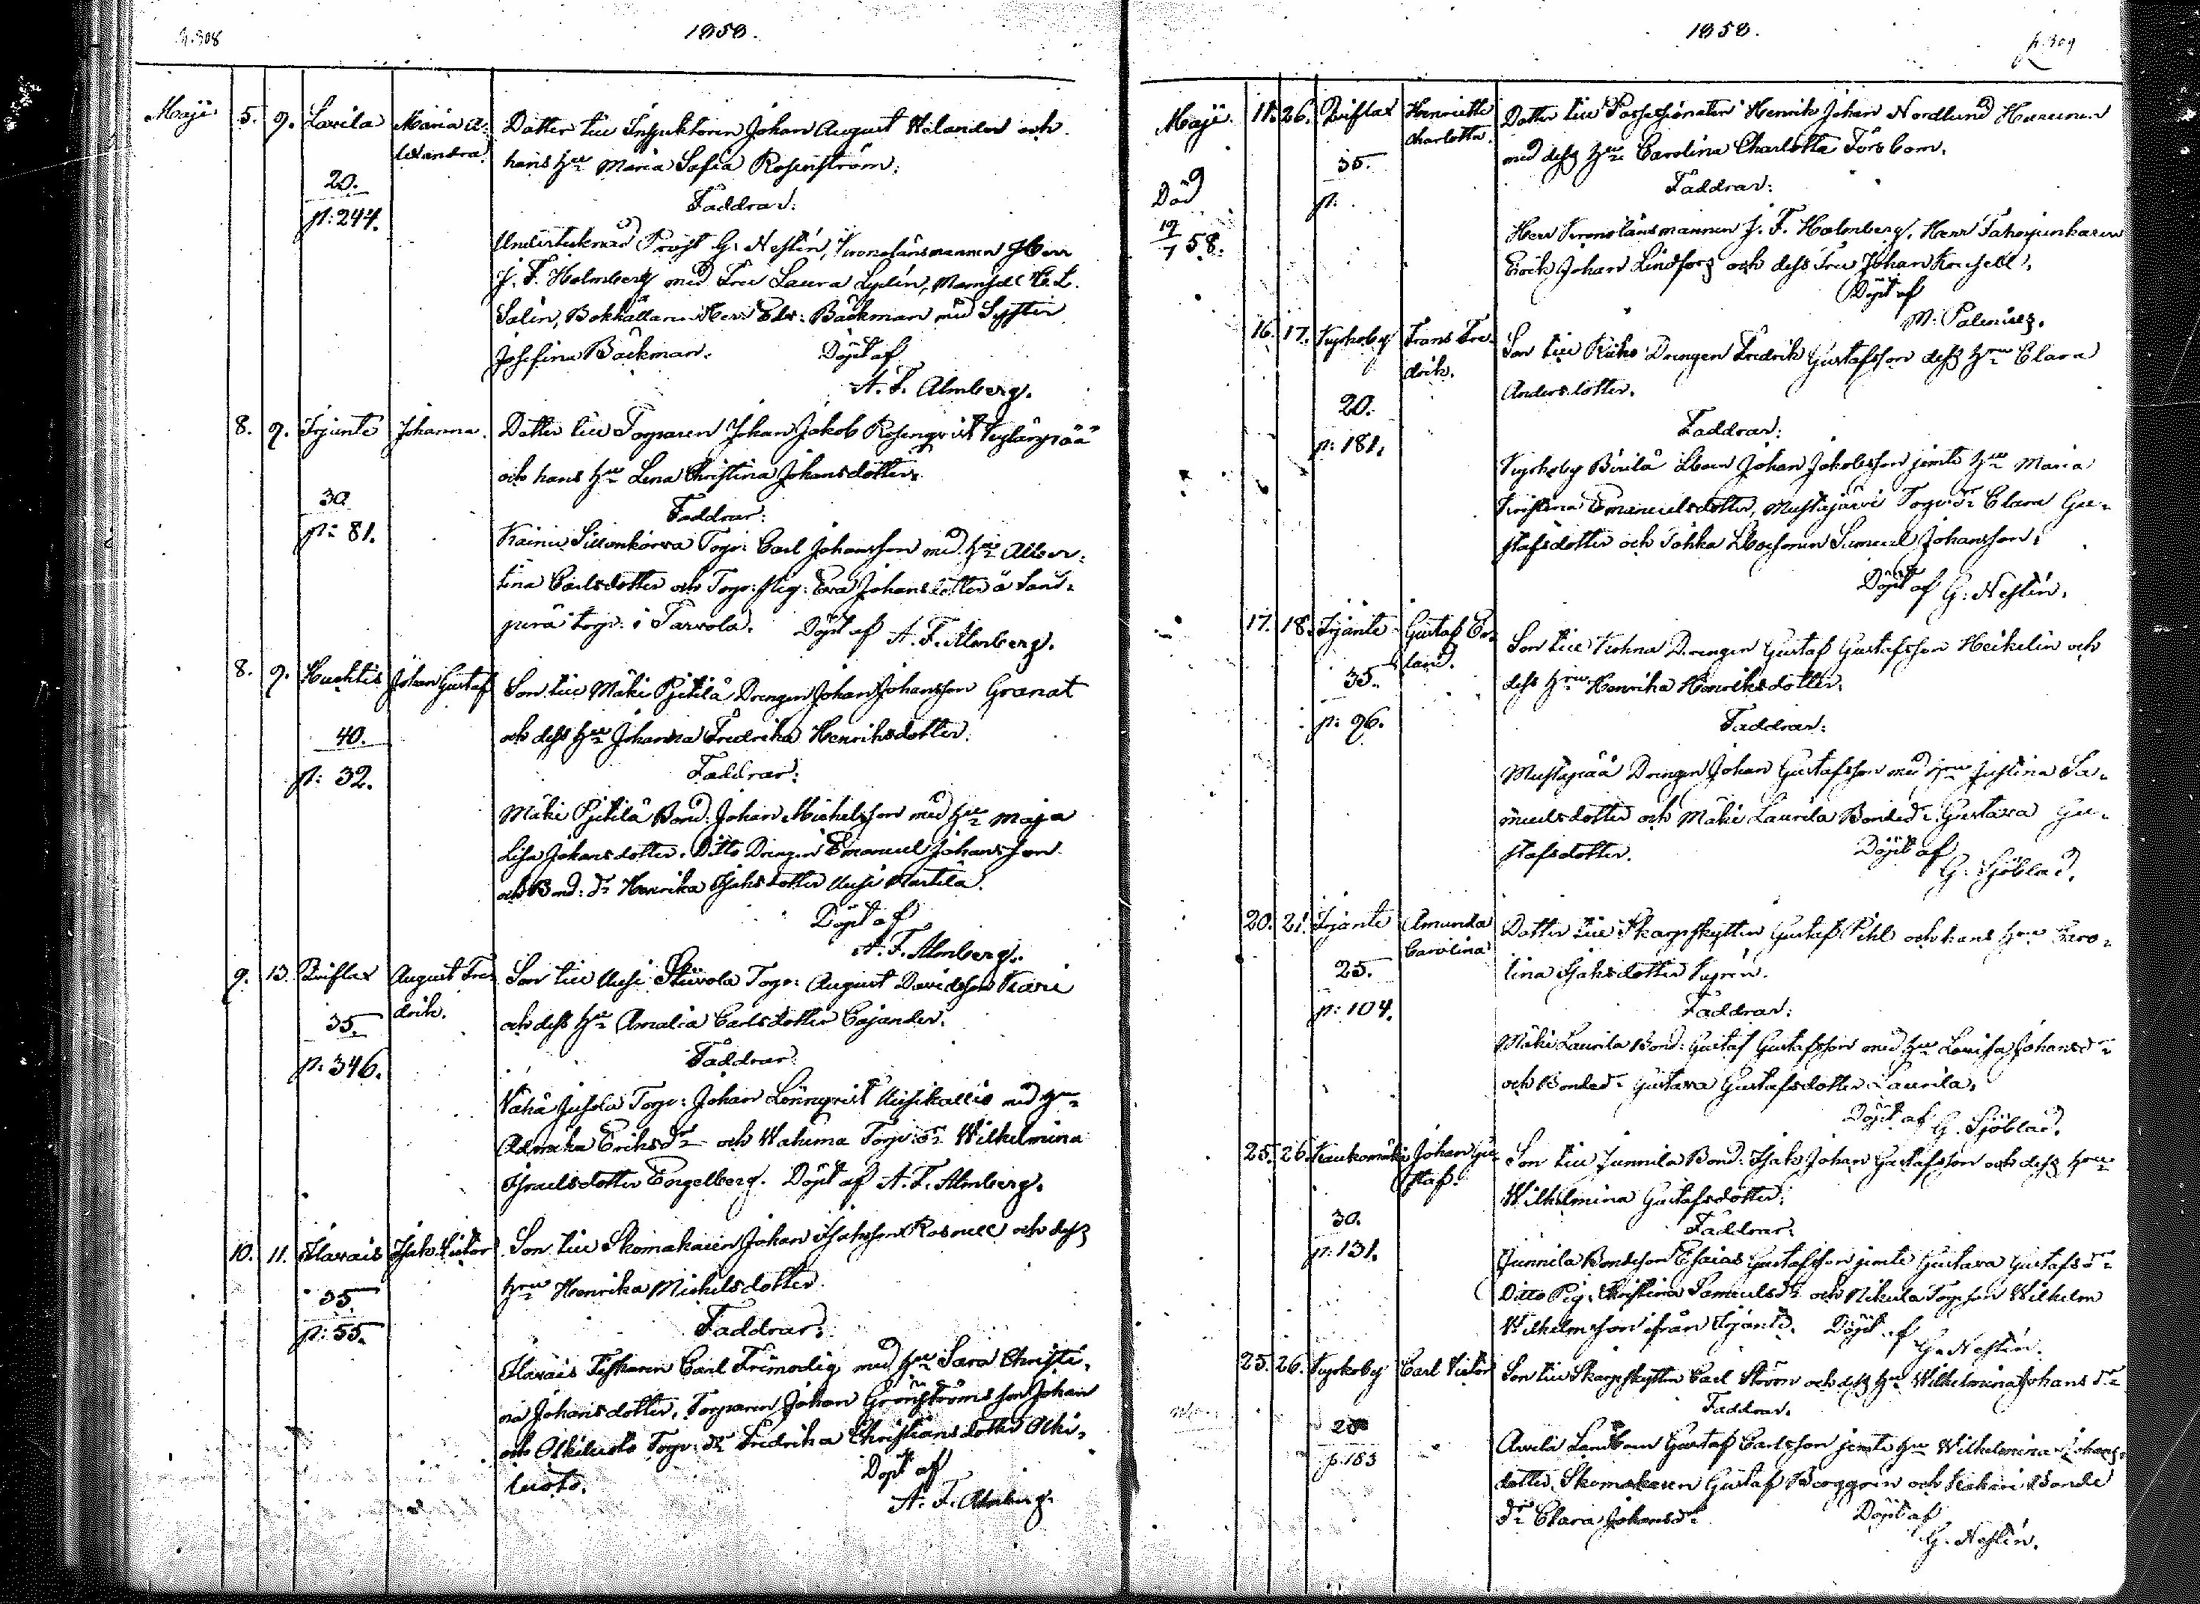 p. 308
1858.
Maji
5. 9. Lavila Maria A-
lexandra.
Dotter till Inspektoren Johan August Welander och
hans Hru Maria Sofia Rosenström.
20.
p: 244.
Faddrar:
Undertecknad Prost G. Heslin, Kronolänsmannen Herr
J. F. Holmberg med Fru Laura Lydin, Mamsell
Salin, Bokhållaren Herr Edv: Bäckman med Syster
Josefina Bäckman. Döpt af
A. F. Almberg.
8. 9. Irjante Johanna.
Dotter till Torparen Johan Jakob Rosenqvist
och hans Hru Lena Christina Johansdotter.
30
p: 81.
Faddrar:
Torp: Carl Johansson med Hru Alber-
tina Carlsdotter och Torp: pig: Eva Johansdotter å
torp: i Tarvola. Döpt af A. F. Almberg.
8. 9. Kuchtis Johan Gustaf
Son till Mäki Pjetilä Drengen Johan Johansson Granat
och dess Hru Johanna Fredrika Henriksdotter.
40.
p: 32.
Faddrar:
Mäki Pjetilä Bond: Johan Michelsson med Hru Maja
Lisa Johansdotter. Ditto Drengen Emanuel Johansson
och Bond: dr Henrika Isaksdotter Uusi Martila.
Döpt af
A. F. Almberg.
9. 13. August Fre-
drik.
Son till Uusi Torp: August Davidsson Kari
och dess Hru Amalia Carlsdotter Cajander.
35.
p: 346.
Faddrar
Vähä Jusola Torp: Johan Lönnqvist Uusikallio med Hru
Eriksdr och Torp: dr Wilhelmina
Israelsdotter Engelberg. Döpt af A. F. Almberg.
10. 11. Isak Victor
Son till Skomakaren Johan Isaksson och dess
Hru Henrika Michelsdotter.
35
p: 55.
Faddrar:
Carl Frimodig med Hru Sara Christi-
na Johansdotter, Torparen Johan Grönströms son Johan
och Olkiluoto Torp: dr Fredrika Christiansdotter Olki-
luoto. Döpt af
A. F. Almberg.
1858.
p. 309
Maji
11. 26. Henriette
Charlotta.
Dotter till Possessionaten Henrik Johan Nordlund
med dess Hru Carolina Charlotta Forsbom.
35.
p.
Död
19/7 58.
Faddrar:
Herr Kronolänsmannen J. F. Holmberg, Herr
Erik Johan Lindfors och dess Fru Johan
Döpt af
M. Palenius.
16. 17. Kyrkoby Frans Fre-
drik.
Son till Drengen Fredrik Gustafsson dess Hru Clara
Andersdotter.
20.
p: 181.
Faddrar:
Kyrkoby Johan Jakobsson jemte Hru Maria
Kristina Emanuelsdotter, Mustajärvi Torp: dr Clara Gu-
stafsdotter och Samuel Johansson.
Döpt af G. Heslin.
17. 18. Irjante Gustaf Er-
land.
Son till Drengen Gustaf Gustafsson Heikelin och
dess Hru Henrika Henriksdotter.
35.
p: 96.
Faddrar:
Mustapää Drengen Johan Gustafsson med Hru Justina Sa-
muelsdotter och Mäki Laurila Bonded:r Gustava Gu-
stafsdotter. Döpt af
G. Sjöblad.
20. 21. Irjante Amanda
Carolina
Dotter till Skarpskytten Gustaf Pihl och hans Hru Caro-
lina Isaksdotter
25.
p: 104.
Faddrar:
Mäki Laurila Bond: Gustaf Gustafsson med Hru Lovisa Johansdr
och Bonded:r Gustava Gustafsdotter Laurila.
Döpt af G. Sjöblad.
25. 26. Kaukomäki Johan Gu-
staf.
Son till Junnila Bond: Isak Johan Gustafsson och dess Hru
Wilhelmina Gustafsdotter.
30.
p: 131.
Faddrar:
Junnila Bondeson Esaias Gustafsson jemte Gustava Gustafsdr
Ditto Pig: Christina Samuelsdr och Nikula Torpson Wilhelm
Wilhelmsson ifrån Irjante. Döpt af
G. Heslin.
25. 26. Kyrkoby Carl Victor
Son till Skarpskytten Carl och dess Hru Wilhelmina Johansdr
Faddrar.
p. 183
Gustaf Carlsson jemte Hru Wilhelmina Johans-
dotter, Skomakaren Gustaf Berggren och Bonde
dr Clara Johansdr Döpt af
G. Heslin.